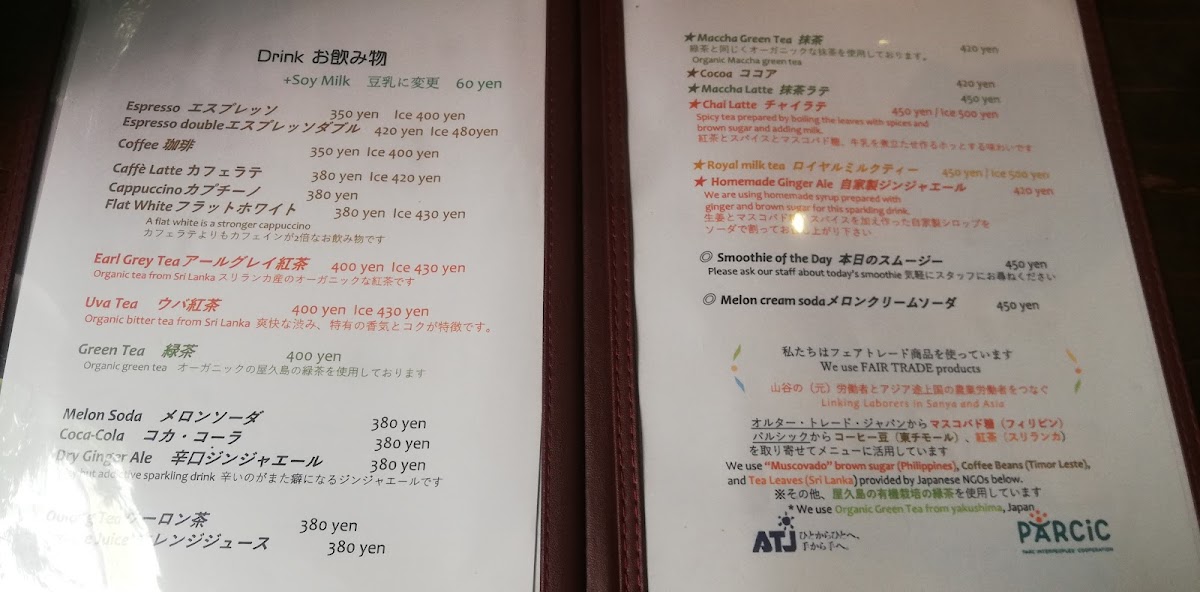 Drink お飲み物
+Soy Milk 豆乳に変更 60 yen
Espresso エスプレッソ 350 yen Ice 400 yen
Espresso double エスプレッソダブル 420 yen Ice 480yen
Coffee 珈琲 350 yen Ice 400 yen
Caffè Latte カフェラテ 380 yen Ice 420 yen
Cappuccino カプチーノ 380 yen
Flat White フラットホワイト 380 yen Ice 430 yen
A flat white is a stronger cappuccino
カフェラテよりもカフェインが2倍なお飲み物です
Earl Grey Tea アールグレイ紅茶 400 yen Ice 430 yen
Organic tea from Sri Lanka スリランカ産のオーガニックな紅茶です
Uva Tea ウバ紅茶 400 yen Ice 430 yen
Organic bitter tea from Sri Lanka 爽快な渋み、特有の香気とコクが特徴です。
Green Tea 緑茶 400 yen
Organic green tea オーガニックの屋久島の緑茶を使用しております
Melon Soda メロンソーダ 380 yen
Coca-Cola コカ・コーラ 380 yen
Dry Ginger Ale 辛口ジンジャエール 380 yen
but sparkling drink 辛いのがまた癖になるジンジャエールです
Tea ウーロン茶 380 yen
Juice レンジジュース 380 yen
★ Maccha Green Tea 抹茶 420 yen
緑茶と同じくオーガニックな抹茶を使用しております。
Organic Maccha green tea
★ Cocoa ココア 420 yen
★ Maccha Latte 抹茶ラテ 450 yen
★ Chai Latte チャイラテ 450 yen / Ice 500 yen
Spicy tea prepared by boiling the leaves with spices and
brown sugar and adding milk.
紅茶とスパイスとマスコバド糖、牛乳を煮立たせ作るホッとする味わいです
★ Royal milk tea ロイヤルミルクティー 450 yen / Ice 500 yen
★ Homemade Ginger Ale 自家製ジンジャエール 420 yen
We are using homemade syrup prepared with
ginger and brown sugar for this sparkling drink.
生姜とマスコバド スパイスを加え作った自家製シロップを
ソーダで割ってお し上がり下さい
◎ Smoothie of the Day 本日のスムージー 450 yen
Please ask our staff about today's smoothie 気軽にスタッフにお尋ねください
◎ Melon cream soda メロンクリームソーダ 450 yen
私たちはフェアトレード商品を使っています
We use FAIR TRADE products
山谷の（元）労働者とアジア途上国の農業労働者をつなぐ
Linking Laborers in Sanya and Asia
オルター・トレード・ジャパンからマスコバド糖（フィリピン）
パルシックからコーヒー豆（東チモール）、紅茶（スリランカ）
を取り寄せてメニューに活用しています
We use "Muscovado" brown sugar (Philippines), Coffee Beans (Timor Leste),
and Tea Leaves (Sri Lanka) provided by Japanese NGOs below.
※その他、屋久島の有機栽培の緑茶を使用しています
* We use Organic Green Tea from yakushima, Japan
ATJ ひとからひとへ、
手から手へ。
PARCIC
PARC INTERPEOPLES' COOPERATION